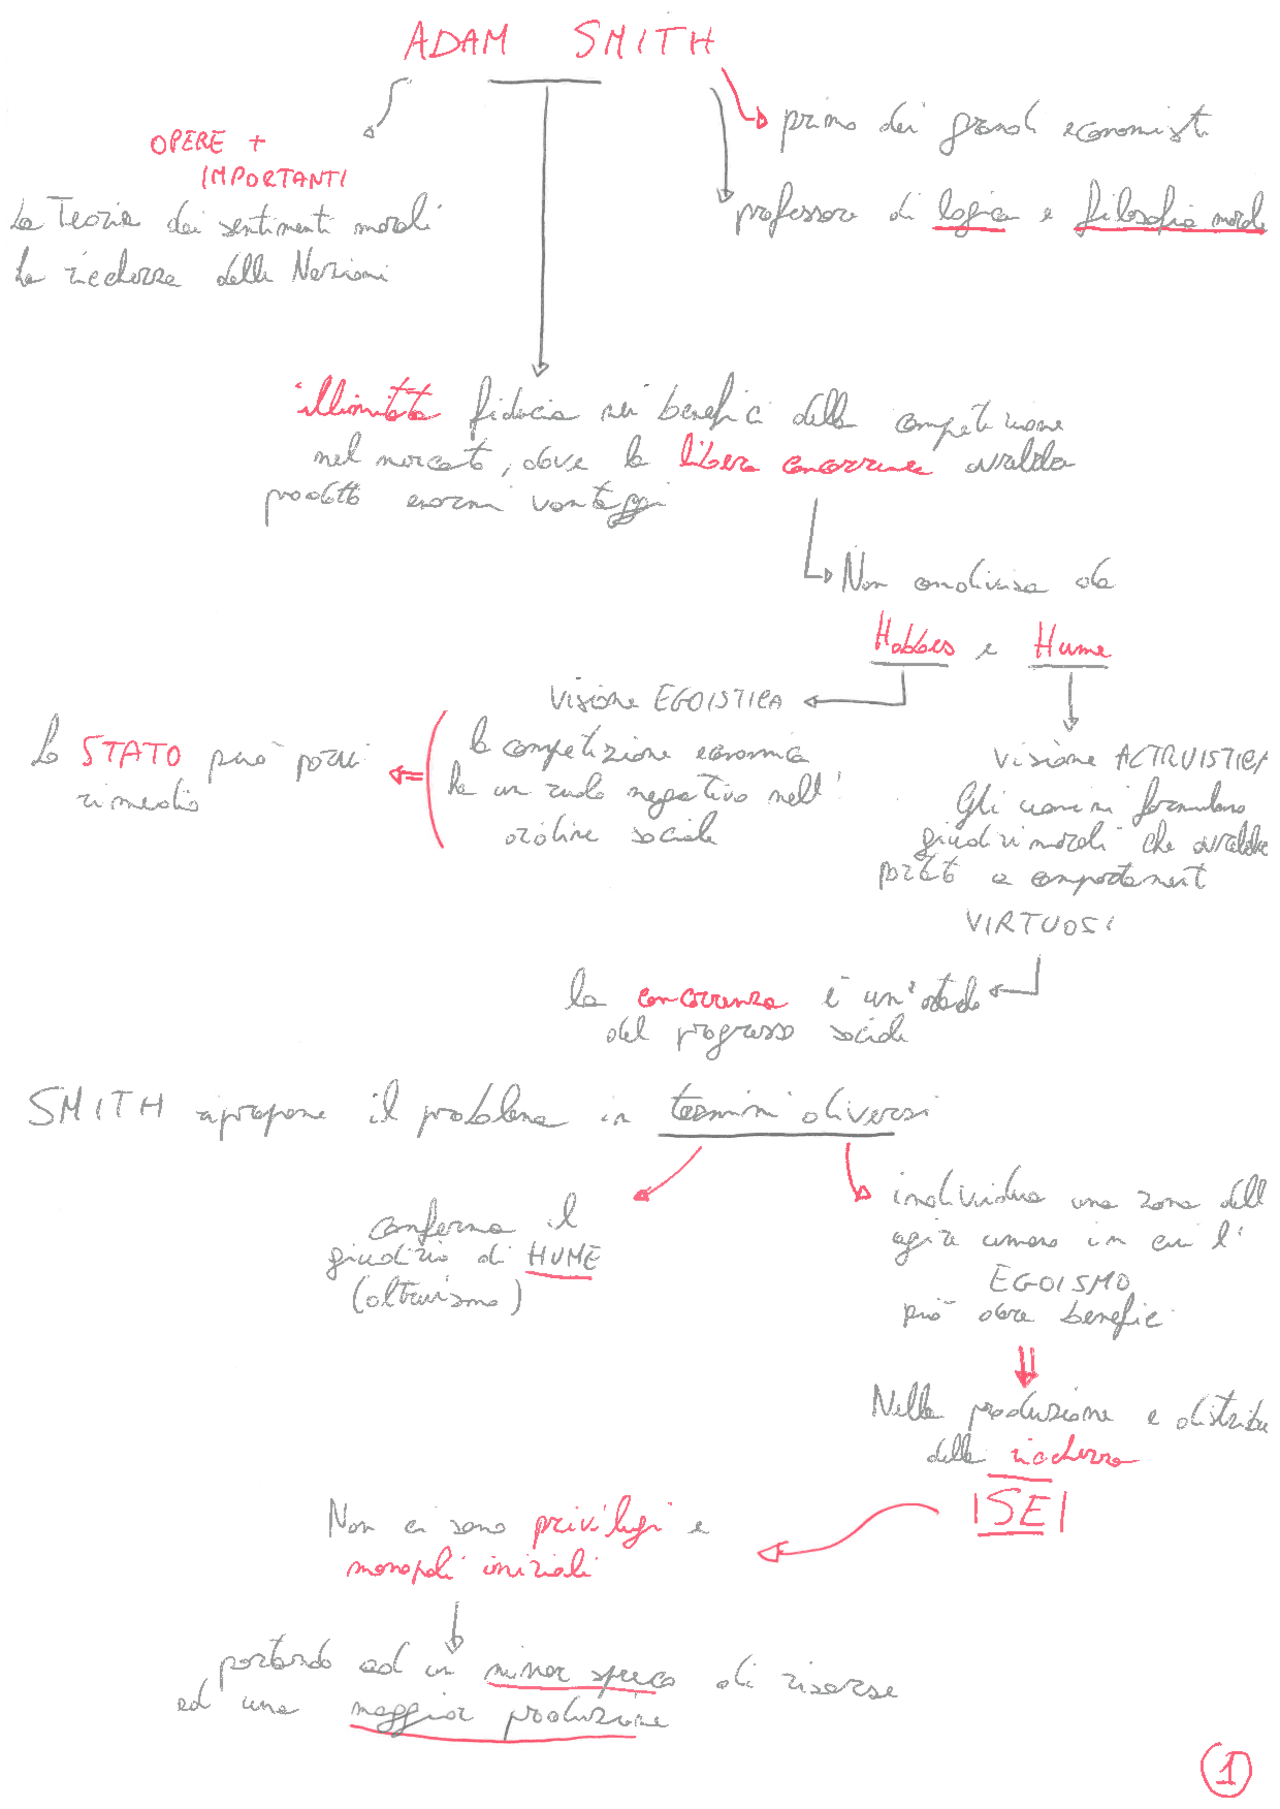 ADAM SMITH
primo dei grandi economisti
OPERE +
IMPORTANTI
professore di logica e filosofia morale
La Teoria dei sentimenti morali
La ricchezza delle Nazioni
illimitata fiducia nei benefici della competizione
nel mercato, dove la libera concorrenza avrebbe
prodotto enormi vantaggi
Non condivisa da
Hobbes e Hume
Visione EGOISTICA
la competizione economica
ha un ruolo negativo nell'
ordine sociale
Lo STATO può porvi
rimedio
Visione ALTRUISTICA
Gli uomini formulano
giudizi morali che avrebbe
portato a comportamenti
VIRTUOSI
la concorrenza è un'ostacolo
del progresso sociale
SMITH ripropone il problema in termini diversi
conferma il
giudizio di HUME
(altruismo)
individua una zona dell
agire umano in cui l'
EGOISMO
può dare benefici
Nella produzione e distribu
della ricchezza
|SE|
Non ci sono privilegi e
monopoli iniziali
portando ad un minor spreco di risorse
ed una maggior produzione
1